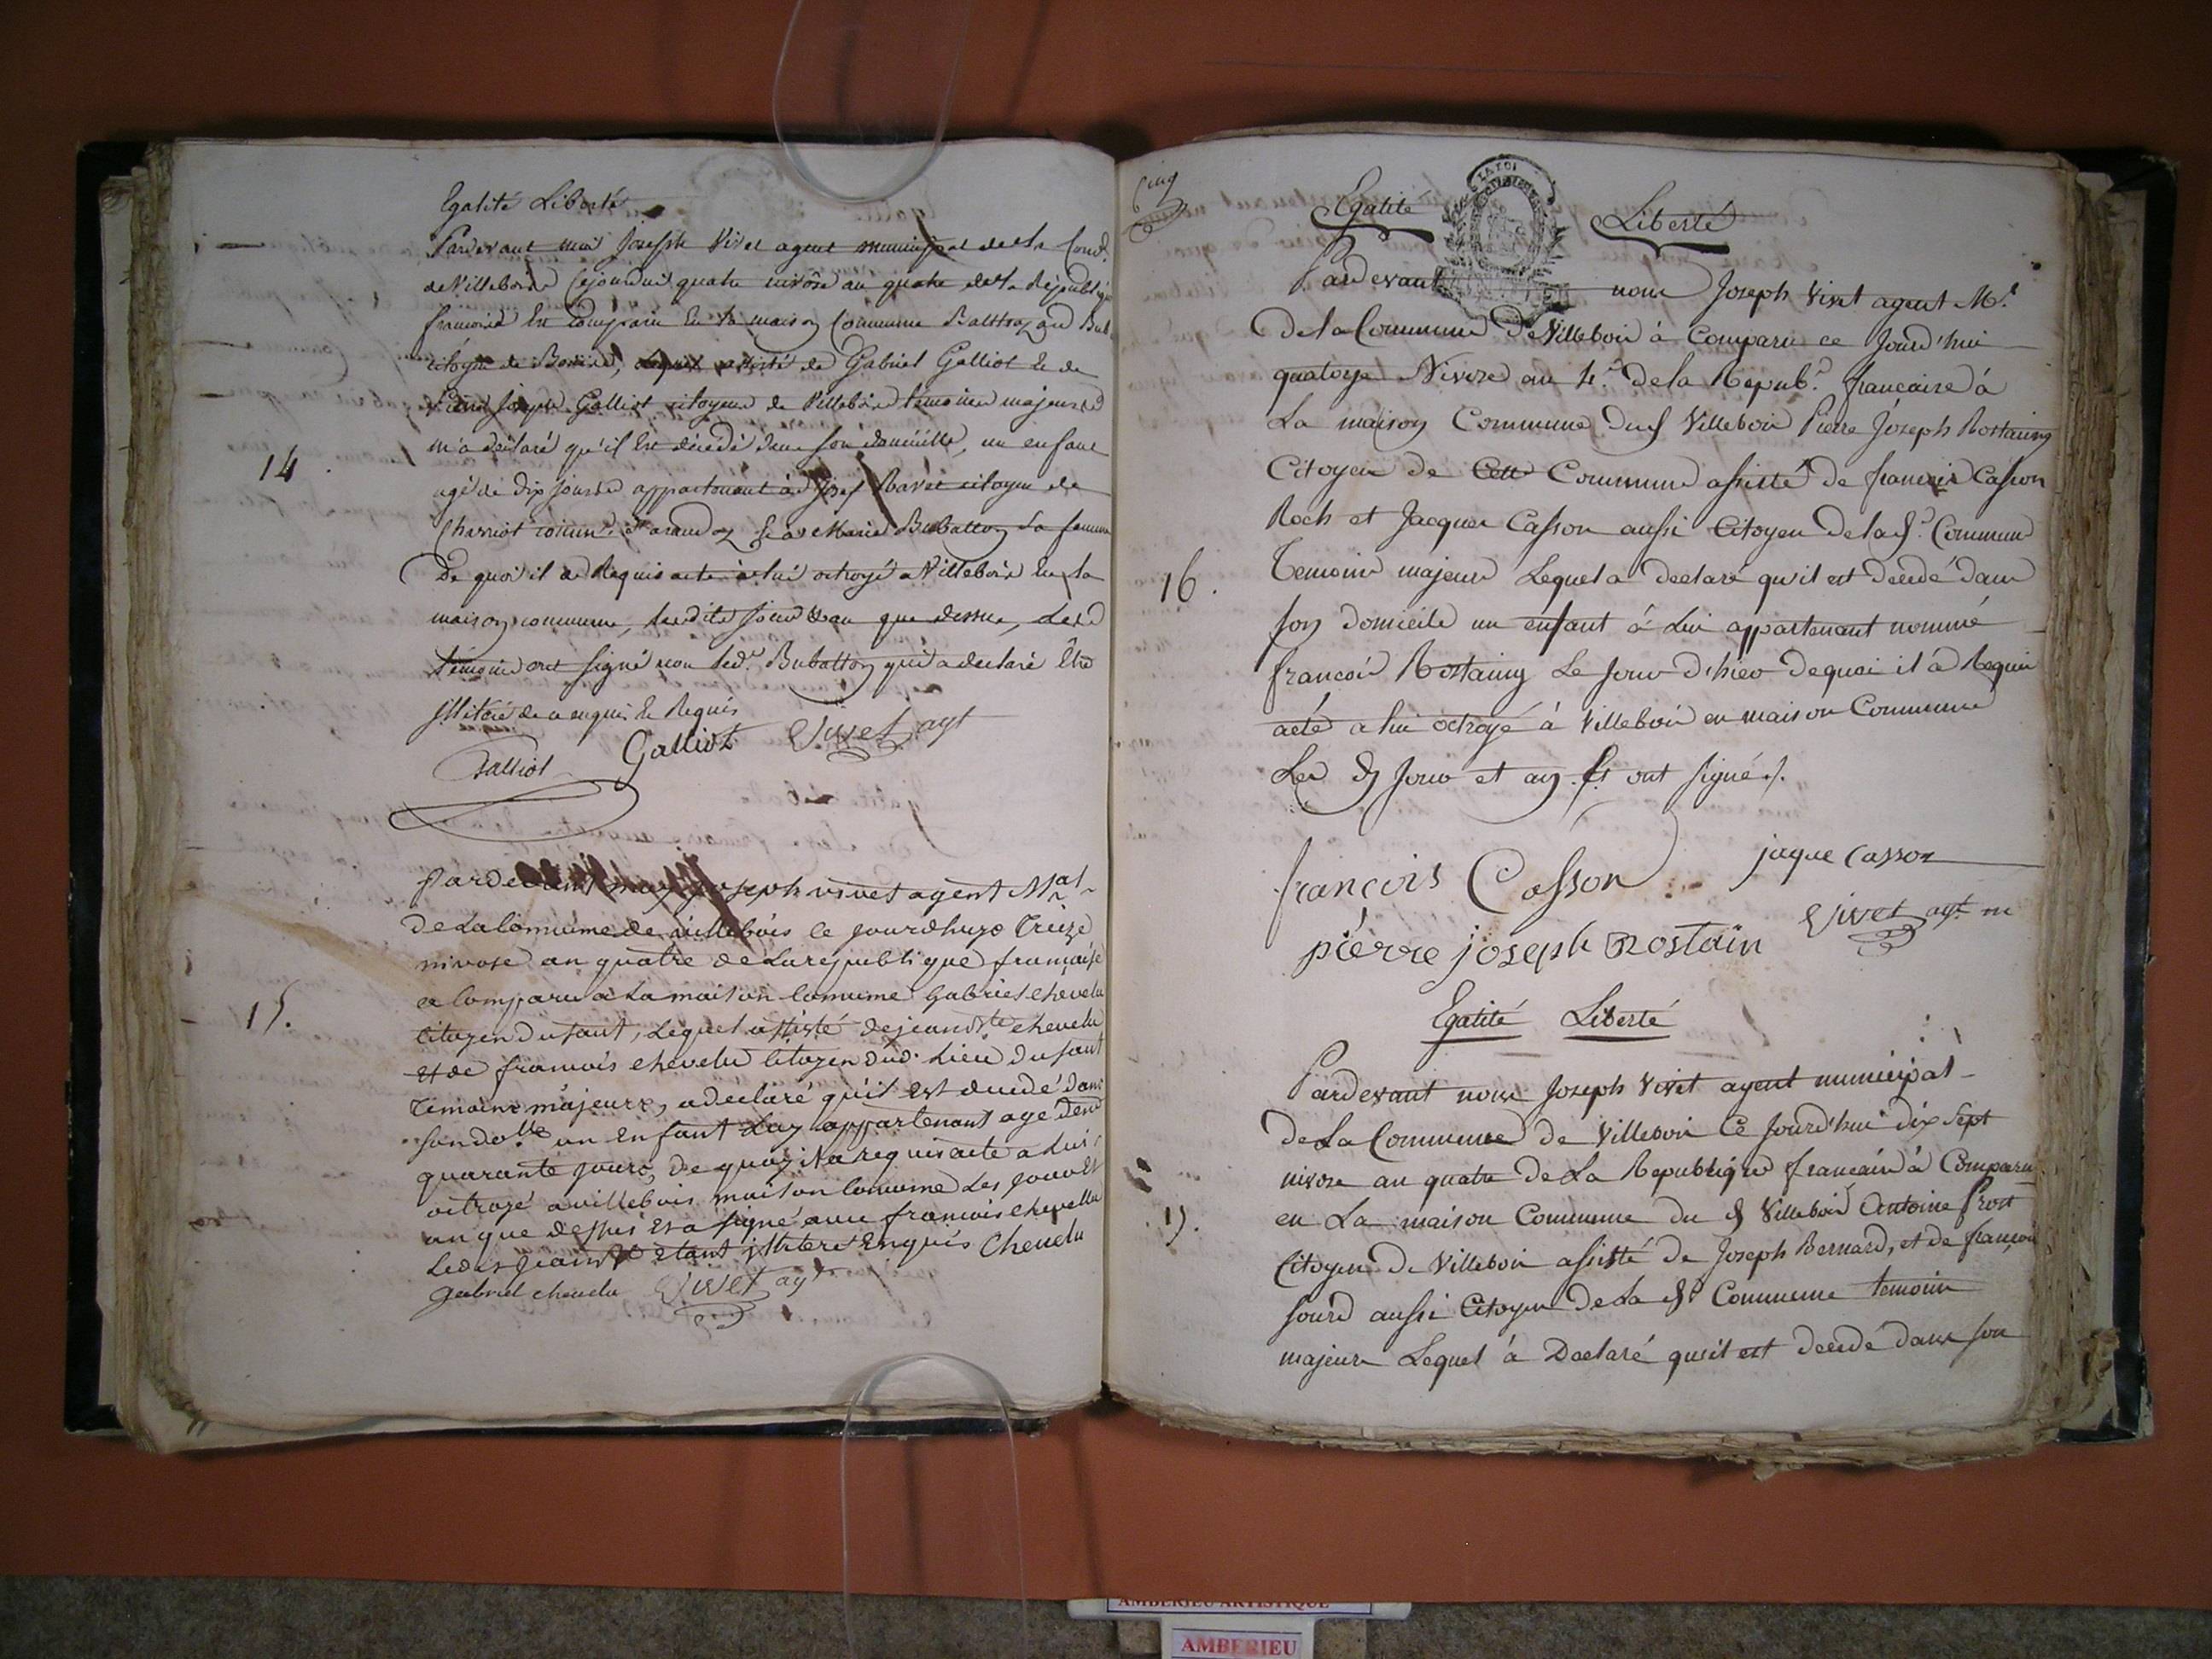 Egalité Liberté
Pardevant moi Joseph Vivet agent municipal de la Comd.
de Villebois Cejourdui quatre nivôse an quatre de la Républiq
francoise Est comparu En la maison Commune Balthazard Bub
citoyen de Bouis, lequel assisté de Gabriel Galliot Et de
Joseph Galliot citoyens de Villebois temoins majeurs
m'a déclaré qu'il Est décédé dans son domicille, un enfant
14.
agé de dix jours appartenant à Josef Ravet citoyen de
Charriot comun. & a Marie Bubatton sa femme
De quoi il a Requis acte à lui octroyé a Villebois En la
maison commune, lesdits jour & an que dessus, Les
témoins ont signé non led. Bubatton qui a declaré Etre
Illiteré de ce enquis Et Requis
Galliot Galliot Vivet agt
Pardevant moy joseph vivet agent Mal
De La Commune de villebois Ce jourdhuy Treize
nivose an quatre de La republique française
a Comparu a La maison Commune Gabriel chevelu
15.
Citoyen du saut, Lequel assisté de jean Bte chevelu
et de francois chevelu Citoyen dud. Lieu du saut
Temoins majeurs, a declaré qu'il est decedé dans
son dolle un Enfant a Luy appartenant agé d'en
quarante jours, de quoy il a requis acte a Lui
octroyé a villebois maison Commune Les jour Et
an que dessus Et a signé avec francois chevellu
Led. jean Bte etant illiteré Enquis Chevelu
gabriel chevelu Vivet agt
Cinq
LA LOI
Egalité Liberté
Pardevant nous Joseph Vivet agent Ml
De la Commune De Villebois à Comparu ce Jourd'hui
quatorze Nivose an 4e. De la Repub.e francaise à
La maison Commune dud Villebois Pierre Joseph Rostaing
Citoyen de Cette Commune assisté de francois Casson
Roch et Jacques Casson aussi Citoyen De lad. Commune
16.
Temoins majeurs Lequel a declaré qu'il est decedé dans
son domicile un enfant à Lui appartenant nommé
francois Rostaing Le Jour d'hier De quoi il à Requis
acte a lui octroyé à Villebois en maison Commune
Les d Jour et an. Et ont signé ./.
françois Casson jaque Casson
pierre joseph Rostain Vivet agt m
Egalité Liberté
Pardevant nous Joseph Vivet agent municipal
De La Commune de Villebois Ce Jourd'hui dix sept
nivose an quatre de La Republique francaise à Comparu
en La maison Commune du d Villebois Antoine Prost
17.
Citoyen De Villebois assisté de Joseph Bernard, et de françois
Sourd aussi Citoyen De La d. Commune temoins
majeurs Lequel à Declaré qu'il est decedé dans son
AMBERIEU ARTISTIQUE
AMBERIEU